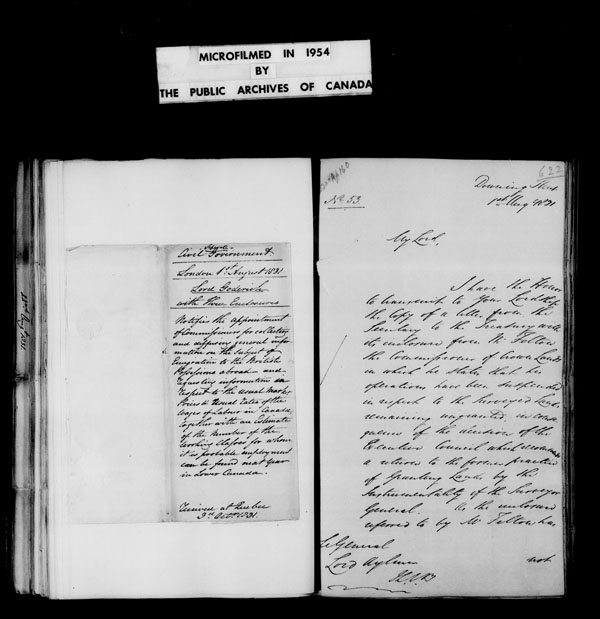 MICROFILMED IN 1954
BY
THE PUBLIC ARCHIVES OF CANADA
Civil Government
London 1st August 1831
Lord Goderich
with three Enclosures
Notifies the appointment
of Commissioners for collecting
and diffusing general infor-
mation on the subject of
Emigration to the British
Possessions abroad - and
requesting information in
respect to the usual Market
Prices & usual Rates of the
Wages of Labour in Canada,
together with an Estimate
of the Number of the
Working Classes for whom
it is probable employment
can be found next year
in Lower Canada.
Received at Quebec
3rd Octr. 1831.
623
No. 53.
Downing Street
1st Aug 1831
My Lord,
I have the Honor
to transmit to Your Lordship
the Copy of a letter from the
Secretary to the Treasury with
its enclosure from Mr. Felton
the Commissioner of Crown Lands
in which he states that his
operations have been suspended
in respect to the Surveyed Lands
remaining ungranted in conse
quence of the decision of the
Executive Council which recommends
a return to the former practice
of granting Lands by the
Instrumentality of the Surveyor
General. As the enclosure
referred to by Mr Felton has
not
Lt General
Lord Aylmer